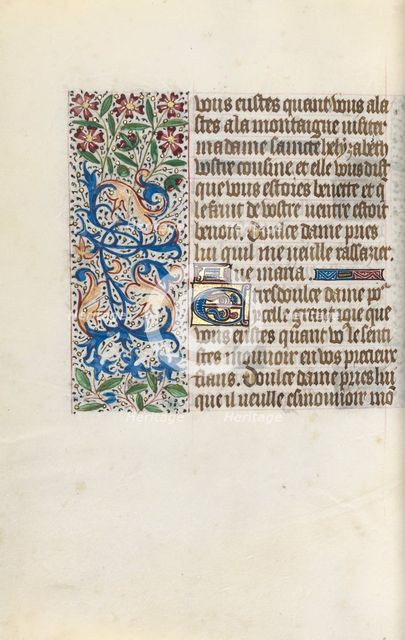 vous eustes quant vous ala
stes a la montaigne visiter
madame saincte helyzabeth
vostre cousine. et elle vous dist
que vous estoies benette et q̃
le fruit de vostre ventre estoit
benoit. Doulce dame pries
luy quil me veille rassazier.
Aue maria.
Tresdoulce dame po᷑
ycelle grant ioie que
vous eustes quant vo᷑ le senti
stes mouuoir en vos precieux
flans. Doulce dame pries luy
que il veille esmouuoir mõ
Heritage
Heritage